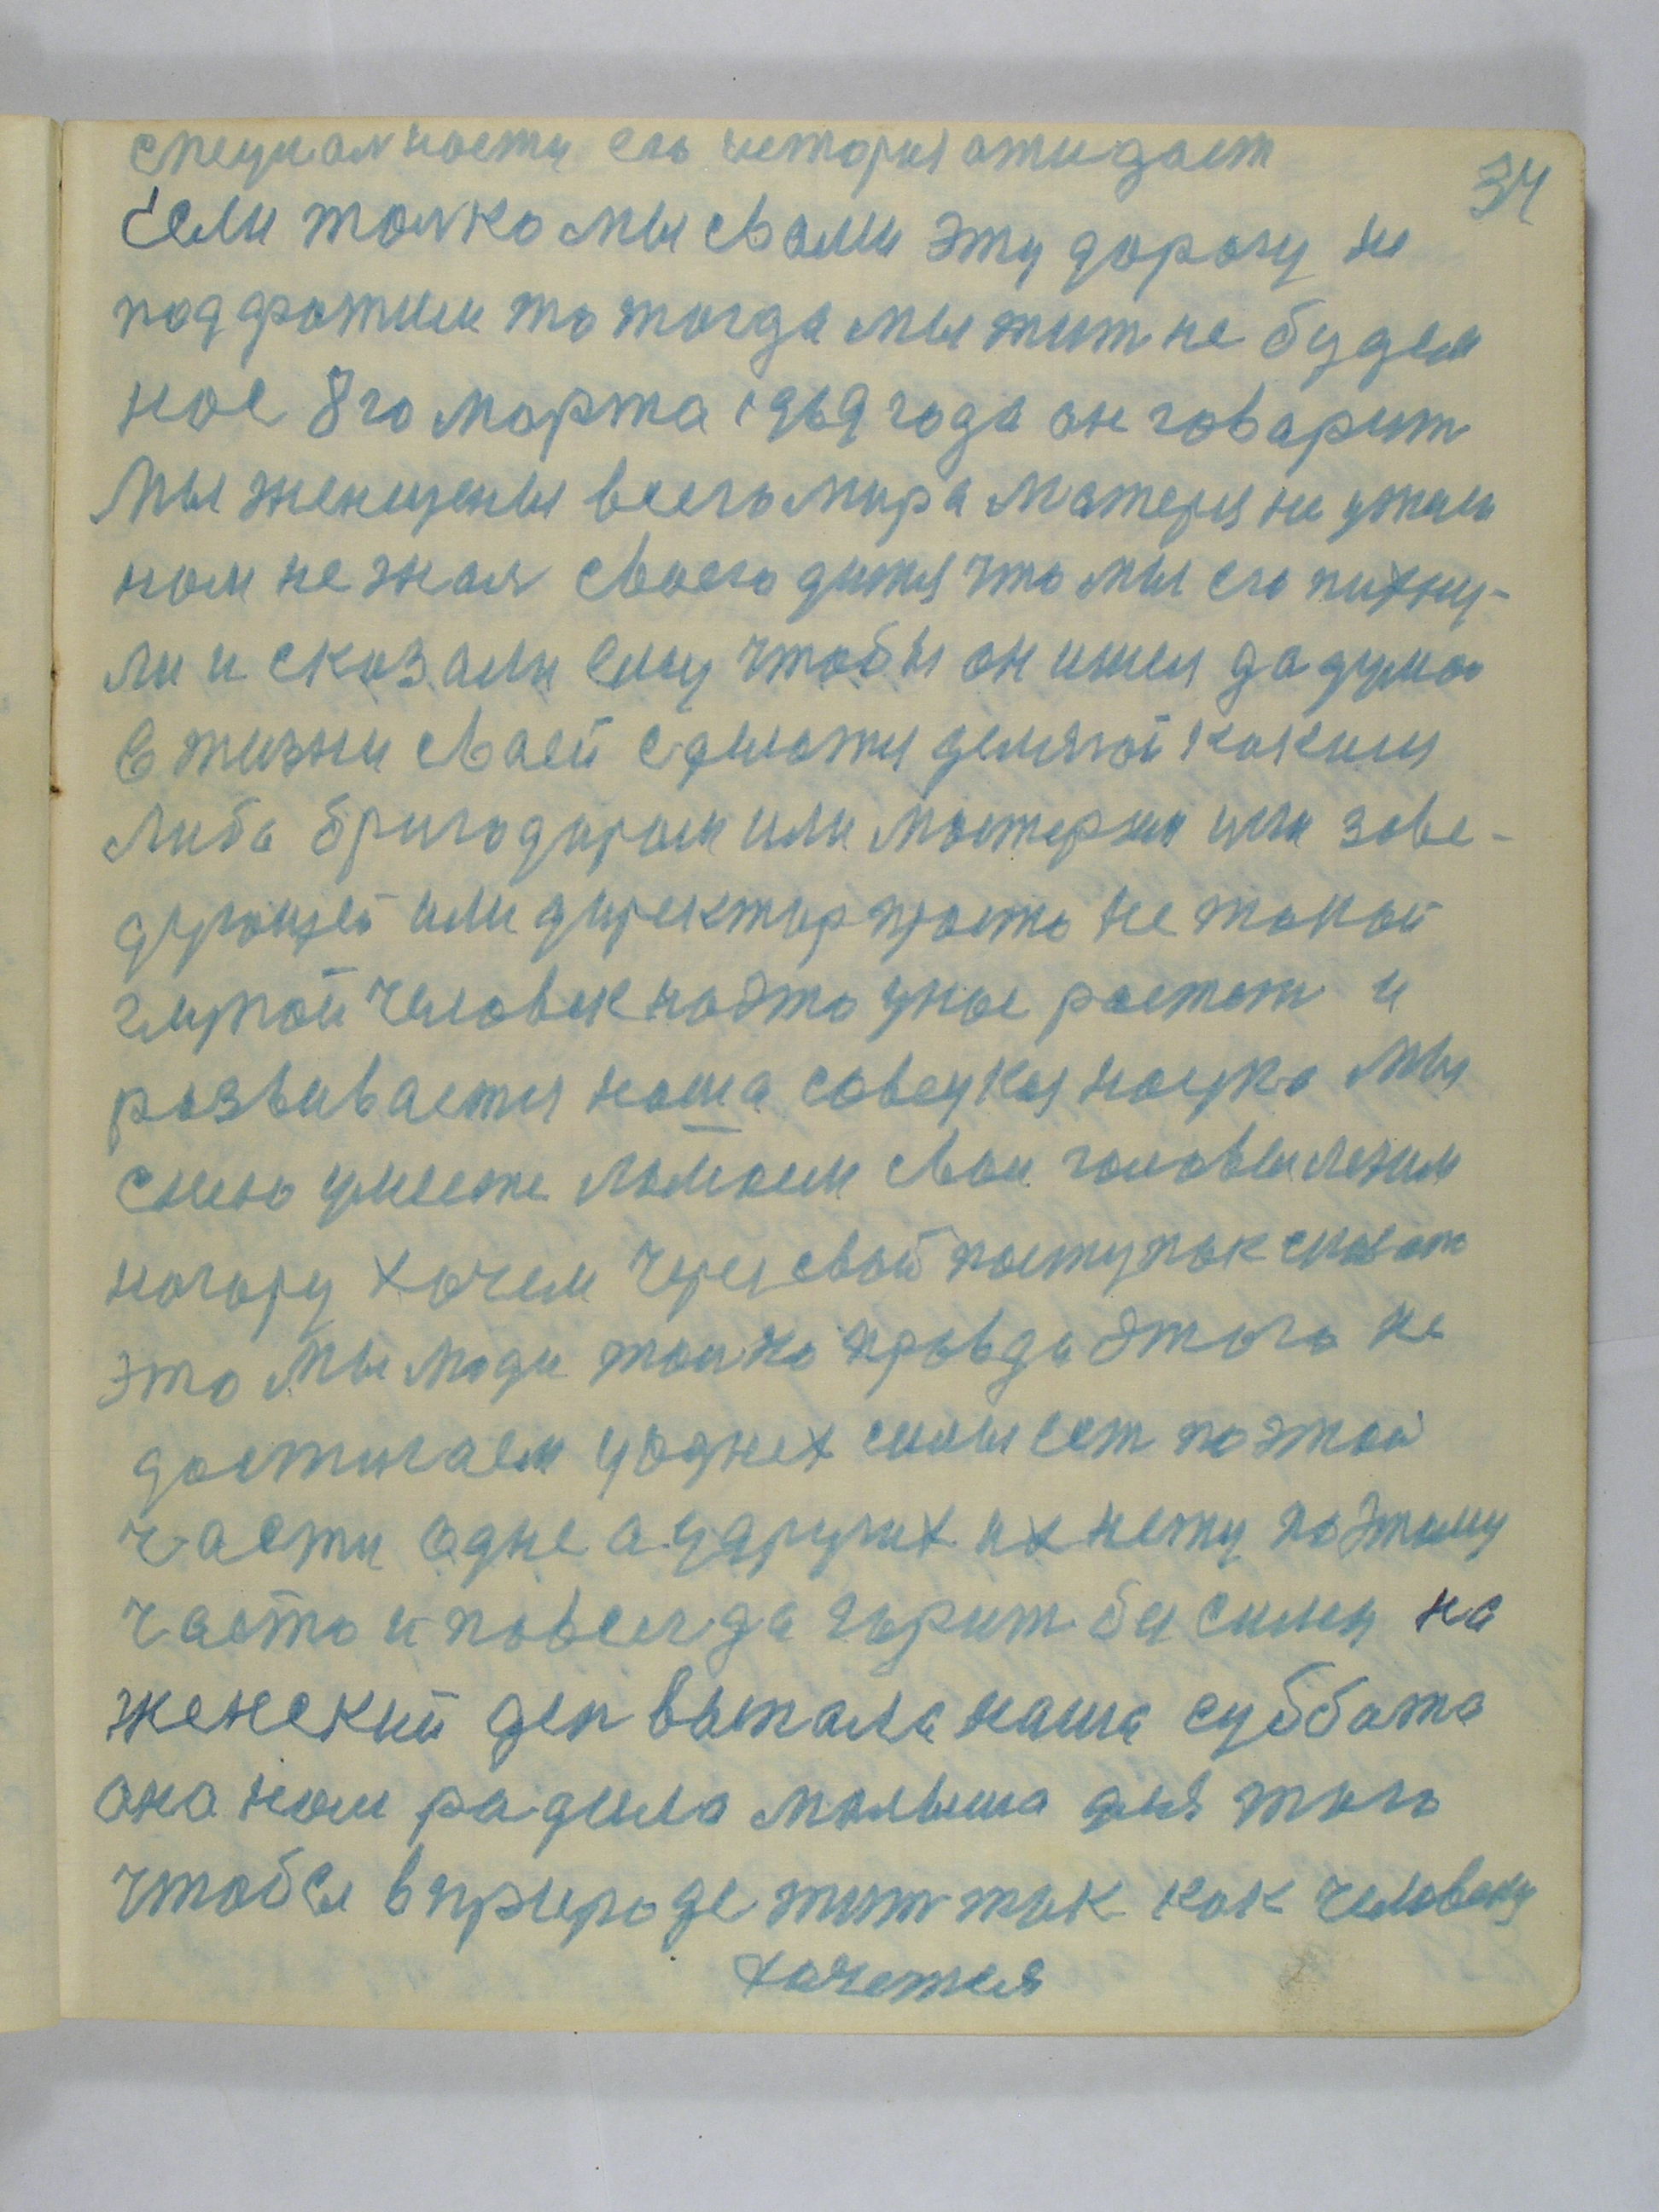 специалности его история ожидает
34
Если толко мы свами эту дорогу не
поддрожим то тогда мы жит не будем
нас 8го марта 1969 года он говарит
Мы женщены всего мира матеря не ужали
нам не жаля своего дитя что мы его пихну-
ли и сказали ему чтобы он ишел да думал
в жизни сваей делягой каким
либа бригодиром или мастером или заве-
дующей или директир просто не такой
глупой человек наэто унас растот и
развивается наша совецкая наука мы
снею умнете ламаем свои головы лезим
нагору хочем через свой поступок сказат
это мы люди толко правди этого не
достигаем уоднех силы ест поэтой
части одне аудругих их нету поэтому
часто и повсегда гарит бы силы на
женский ден выпала наша суббота
ана нам радила малыша для того
чтобы вприроде жит так как человеку
хочется